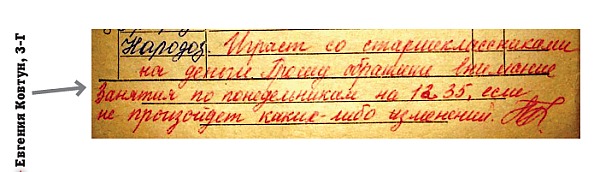 Евгения Ковтун, 3-Г
Народов. Играет со старшеклассниками
на деньги. Прошу обратить внимание
Занятия по понедельникам на 12 35, если
не произойдет каких-либо изменений.